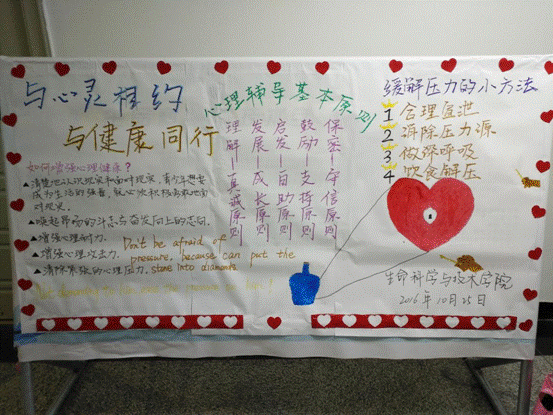 与心灵相约
与健康同行
如何增强心理健康?
▲清楚地认识现实和面对现实,青少年想要
成为生活的强者,就必须积极勇敢地面
对现实。
▲唤起昂扬的斗志与奋发向上的志向。
▲增强心理耐力。
▲增强心理攻击力。
▲清除紧张的心理压力。
Don't be afraid of
pressure, because can put the
stone into diamonds
心理辅导基本原则
理解——真诚原则
发展——成长原则
启发——自助原则
鼓励——支持原则
保密——守信原则
缓解压力的小方法
1 合理宣泄
2 消除压力源
3 做深呼吸
4 饮食解压
生命科学与技术学院
2016年10月25日